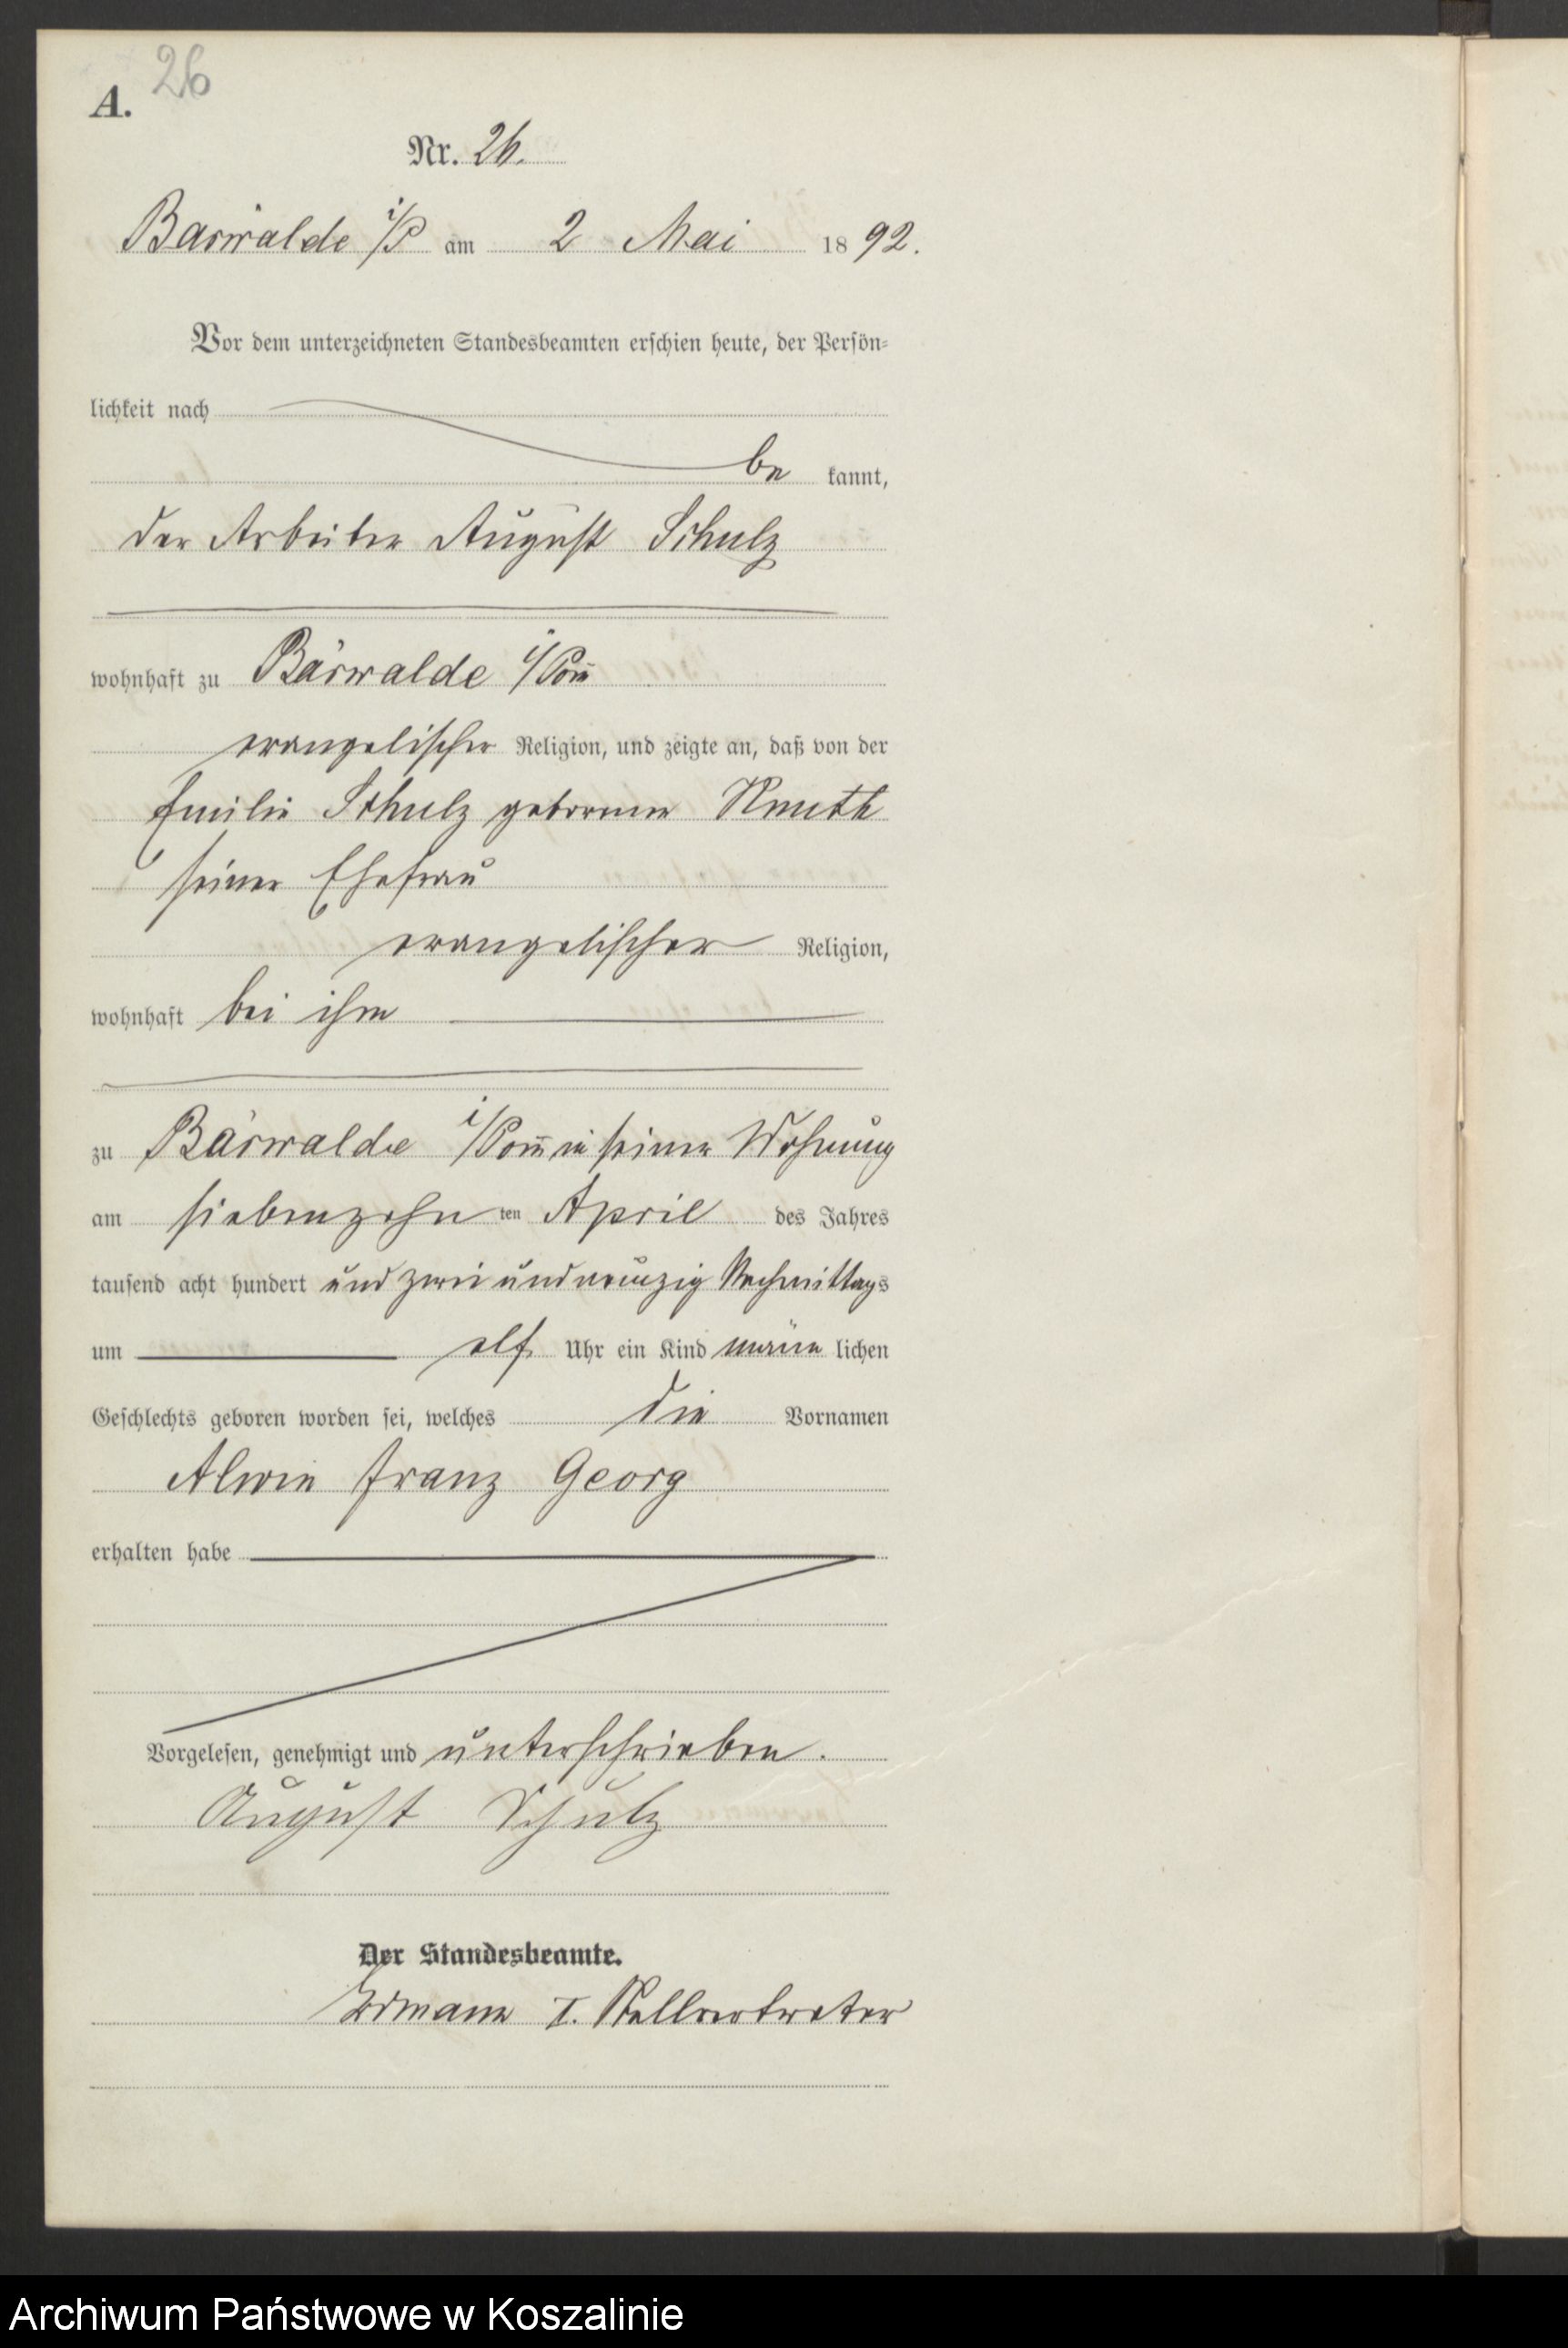 26
A.
Nr. 26.
Barwalde i/P am 2 Mai 1892.
Vor dem unterzeichneten Standesbeamten erschien heute, der Persön-
lichkeit nach
be kannt,
der Arbeiter August Schulz
wohnhaft zu Bärwalde i/Pom̄
evangelischer Religion, und zeigte an, daß von der
Emilie Schulz geborenen
seiner Ehefrau
evangelischer Religion,
wohnhaft bei ihm
zu Bärwalde i/Pom̄ in seiner Wohnung
am siebenzehn ten April des Jahres
tausend acht hundert und zwei und neunzig Nachmittags
um elf Uhr ein Kind männ lichen
Geschlechts geboren worden sei, welches die Vornamen
Alwin Franz Georg
erhalten habe
Vorgelesen, genehmigt und unterschrieben.
August Schulz
Der Standesbeamte.
I. Stellvertreter
Archiwum Państwowe w Koszalinie